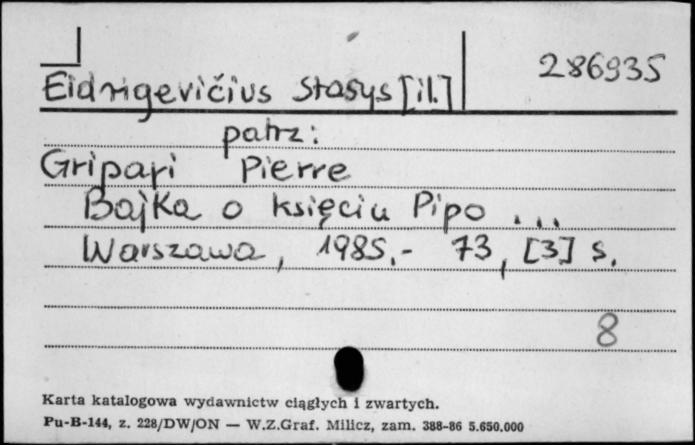 Eidrigevičius Stasys [il.] 286935
patrz:
Gripari Pierre
Bajka o księciu Pipo ...
Warszawa, 1985.- 73, [3] s.
8
Karta katalogowa wydawnictw ciągłych i zwartych.
Pu-B-144, z. 228/DW/ON — W.Z.Graf. Milicz, zam. 388-86 5.650.000